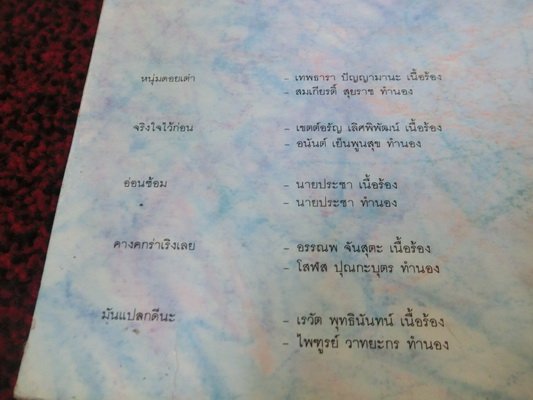 หนุ่มดอยเต่า - เทพธารา ปัญญามานะ เนื้อร้อง
- สมเกียรติ์ สุยราช ทำนอง
จริงใจไว้ก่อน - เขตต์อรัญ เลิศพิพัฒน์ เนื้อร้อง
- อนันต์ เย็นพูนสุข ทำนอง
อ่อนซ้อม - นายประชา เนื้อร้อง
- นายประชา ทำนอง
คางคกร่าเริงเลย - อรรณพ จันสุตะ เนื้อร้อง
- โสฬส ปุณกะบุตร ทำนอง
มันแปลกดีนะ - เรวัต พุทธินันทน์ เนื้อร้อง
- ไพฑูรย์ วาทยะกร ทำนอง